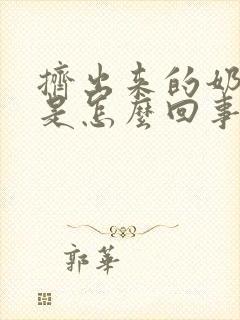 擠出來的奶
是怎麼回事
郭華